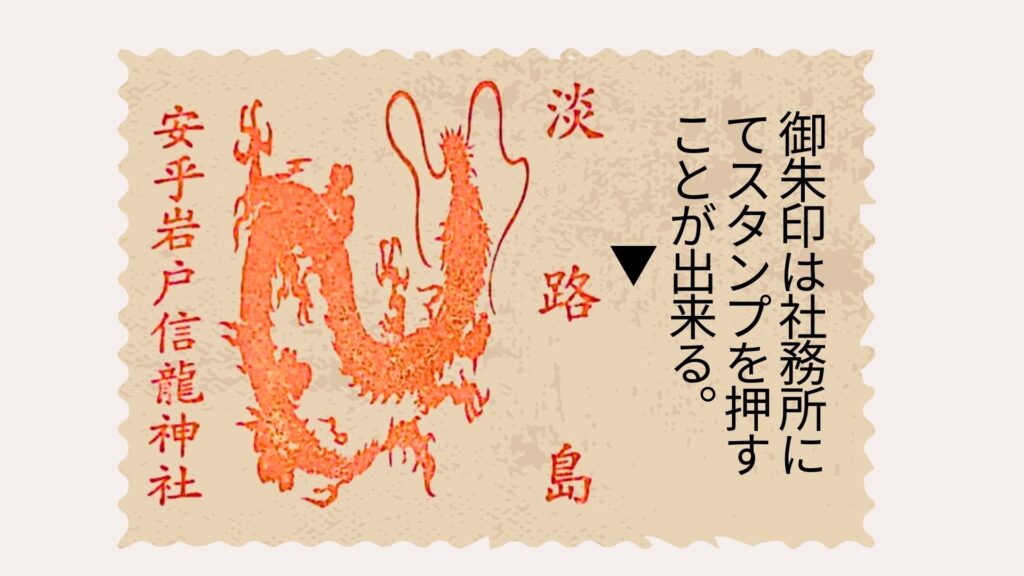 御朱印は社務所に
てスタンプを押す
ことが出来る。
▼
淡路島
安乎岩戸信龍神社